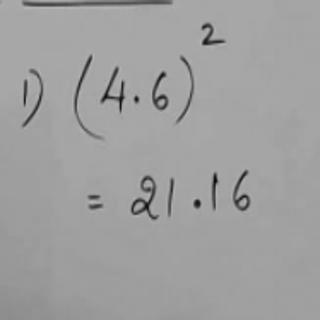 1) (4.6)²
= 21.16